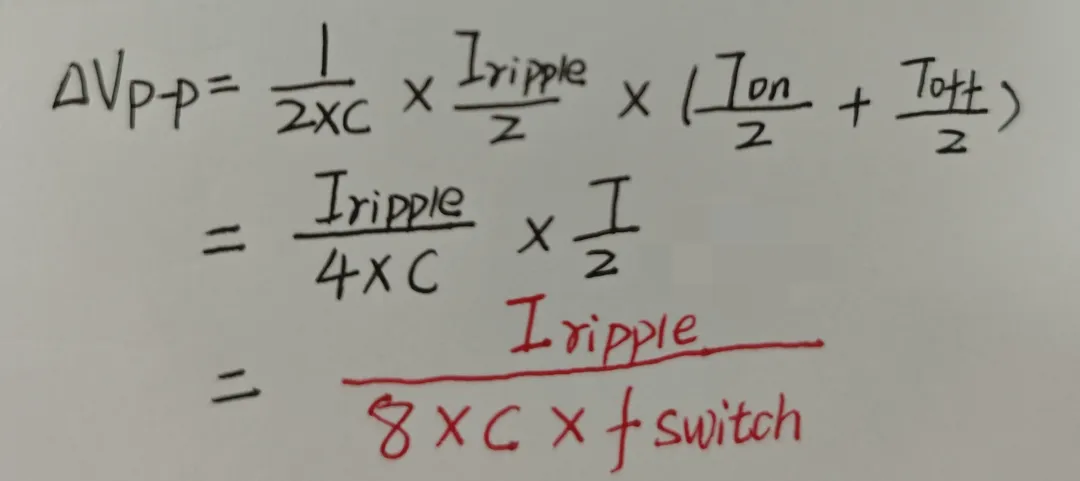 ΔVp-p = 1/(2×C) × Iripple/2 × (Ton/2 + Toff/2)
= Iripple/(4×C) × T/2
= Iripple/(8×C×fswitch)